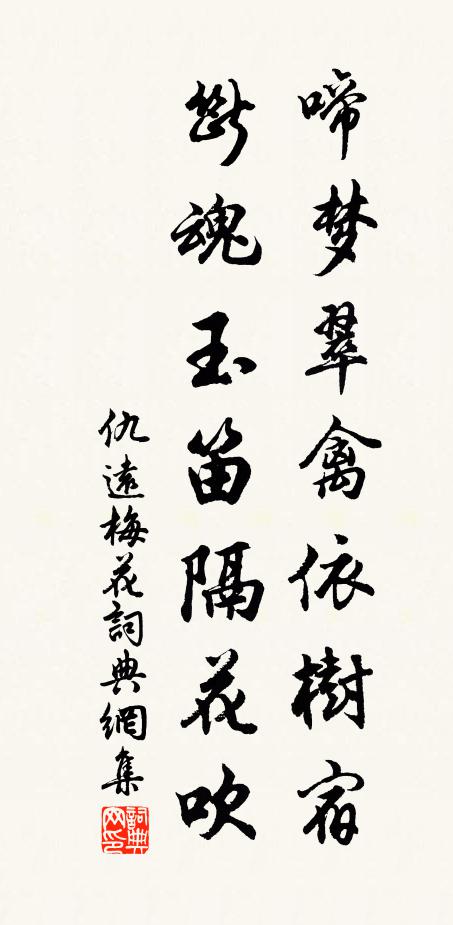 啼梦翠禽依樹宿
斷魂玉笛隔花吹
仇遠梅花詞典網集
詞典网印